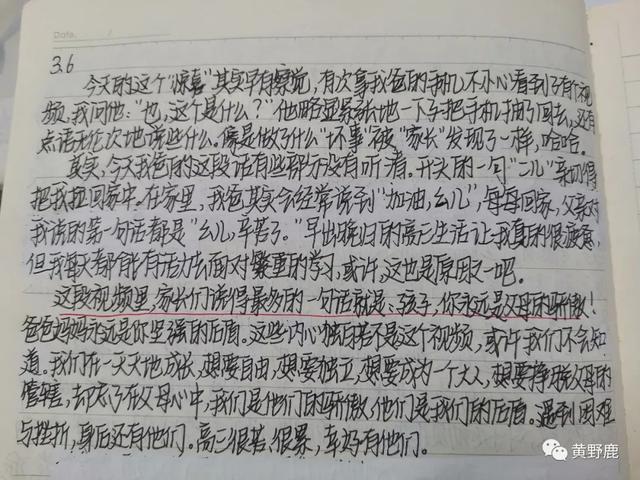 Date.
3.6
今天的这个"惊喜"其实早有察觉，有次拿我爸的手机不小心看到了有个视
频，我问他："也，这个是什么？"他略显紧张地一下子把手机抽了回去，还有
点语无伦次地说些什么。像是做了什么"坏事"被"家长"发现了一样，哈哈。
其实，今天我爸的这段话有些部分没有听清。开头的一句"二儿"亲切得
把我拉回家中。在家里，我爸其实会经常说予"加油，幺儿"每每回家，父亲对
我说的第一句话都是"幺儿，辛苦了。"早出晚归的高三生活让我真的很疲惫，
但我每天都能有活力去面对繁重的学习，或许，这也是原因之一吧。
这段视频里，家长们说得最多的一句话就是、孩子，你永远是父母的骄傲！
爸爸妈妈永远是你坚强的后盾。这些内心独白若不是这个视频，或许我们不会知
道。我们在一天天地成长，想要自由，想要独立，想要成为一个大人，想要挣脱父母的
管辖，却忘了在父母心中，我们是他们的骄傲，他们是我们的后盾。遇到困难
与挫折，身后还有他们。高三很苦、很累，幸好有他们。
黄野鹿